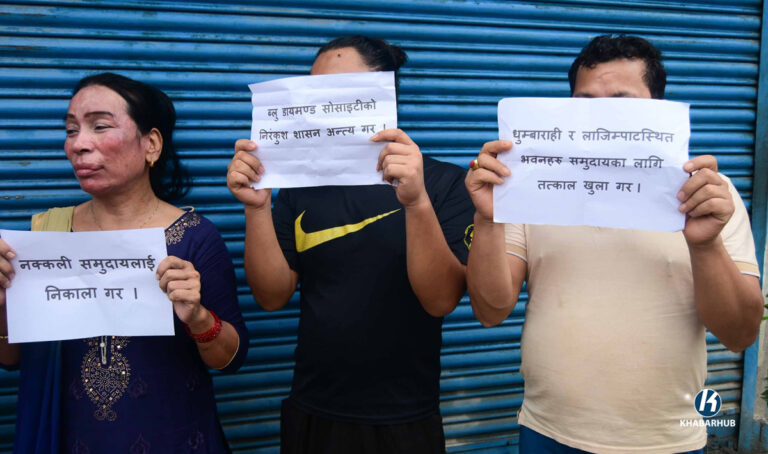 नक्कली समुदायलाई
निकाला गर ।
ब्लु डायमण्ड सोसाइटीको
निरंकुश शासन अन्त्य गर ।
धुम्बाराही र लाजिम्पाटस्थित
भवनहरू समुदायका लागि
तत्काल खुला गर ।
KHABARHUB